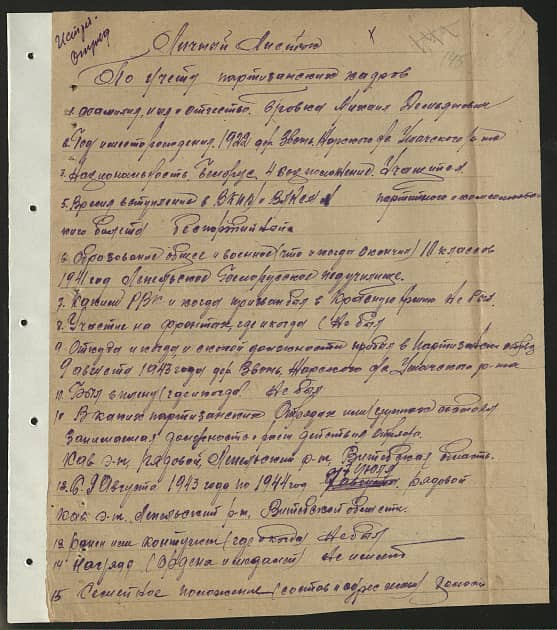 Истр.
Отряд
Личный Листок
По учету партизанских кадров
1. Фамилия, имя и отчество. Бровка Михаил Демьянович
2. Год и место рождения. 1922 дер. Звонь, Жарского с/с Ушачского р-на
3. Национальность. Белорус 4 Соц. положение. Учащийся
5. Время вступления в ВКП(б) и ВЛКСМ партийного и комсомольс
кого билета беспартийный
6. Образование общее и военное (что и когда окончил) 10 классов
1941 год Лепельское Белорусское педучилище.
7. Каким РВК и когда призывался в Красную Армию Не был.
8. Участие на фронтах, где и когда (Не был
9. Откуда и когда и с какой должности прибыл в партизанский отряд
9 августа 1943 года дер. Звонь, Жарского с/с Ушачского р-на
10. Был в плену (где и когда Не был
11. В каких партизанских Отрядах или (группах) состоял
Занимаемая должность и район действия отряда.
рядовой, Лепельский р-н, Витебская область.
12. С 9 Августа 1943 года по 1944 год июля рядовой
Лепельский р-н, Витебской области.
13. Ранен или контужен (где и когда) Не был
14. Награды (Ордена и медали) Не имеет
15. Семейное положение (состав и адрес семьи) холост